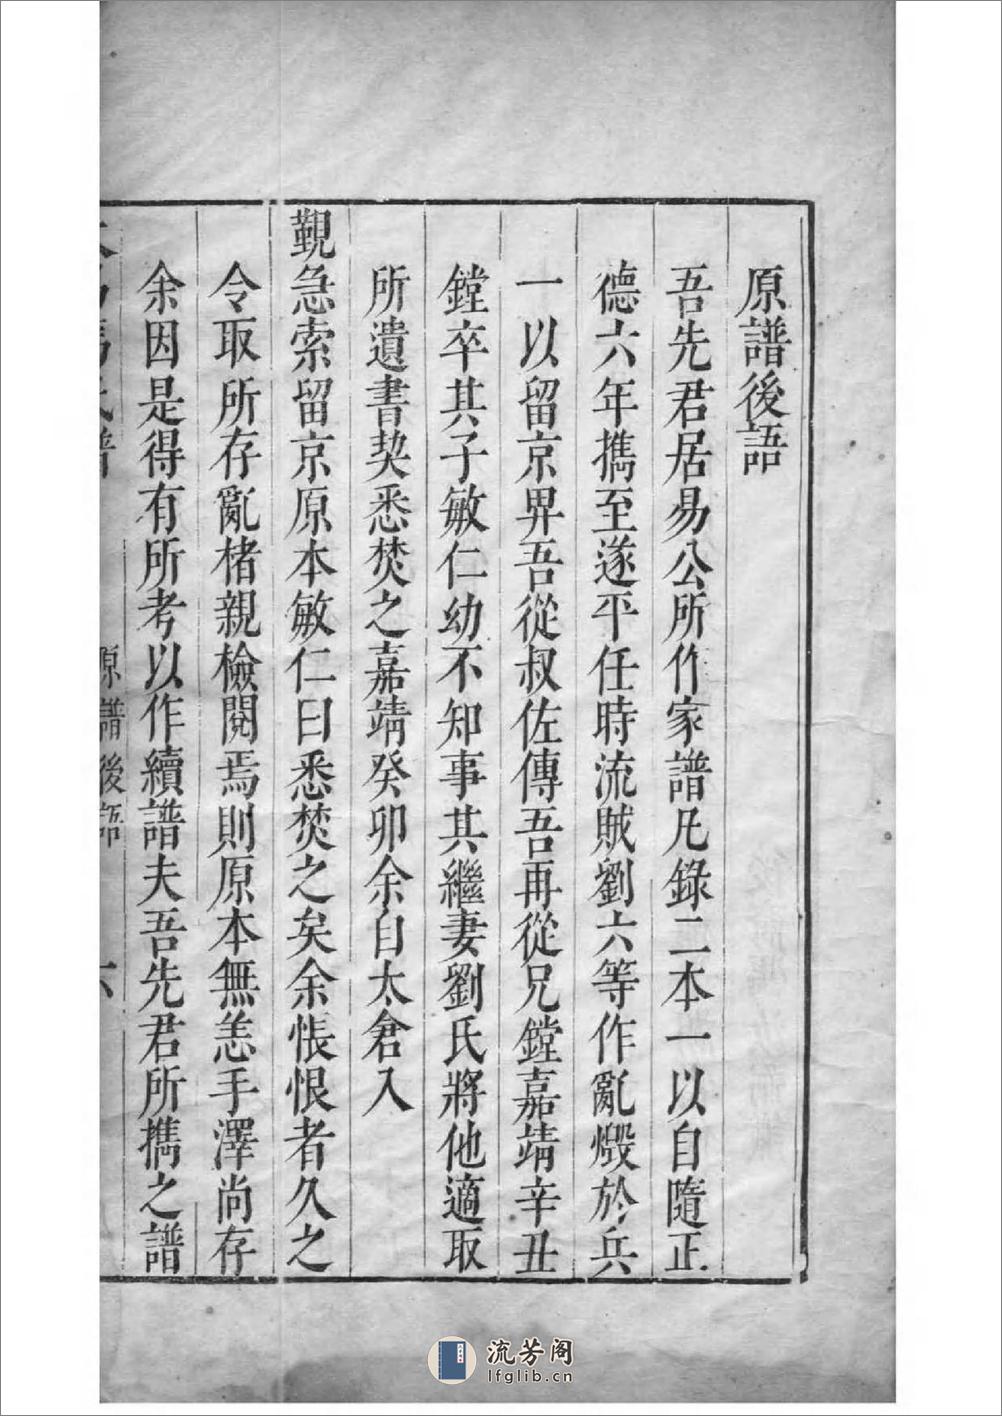 原譜後語
吾先君居易公所作家譜凡錄二本一以自隨正
德六年攜至遂平任時流賊劉六等作亂燬於兵
一以留京畀吾從叔佐傳吾再從兄鏜嘉靖辛丑
鏜卒其子敏仁幼不知事其繼妻劉氏將他適取
所遺書契悉焚之嘉靖癸卯余自太倉入
覲急索留京原本敏仁曰悉焚之矣余悵恨者久之
令取所存亂楮親檢閱焉則原本無恙手澤尚存
余因是得有所考以作續譜夫吾先君所攜之譜
氏譜 原譜後語 六
流芳阁
lfglib.cn